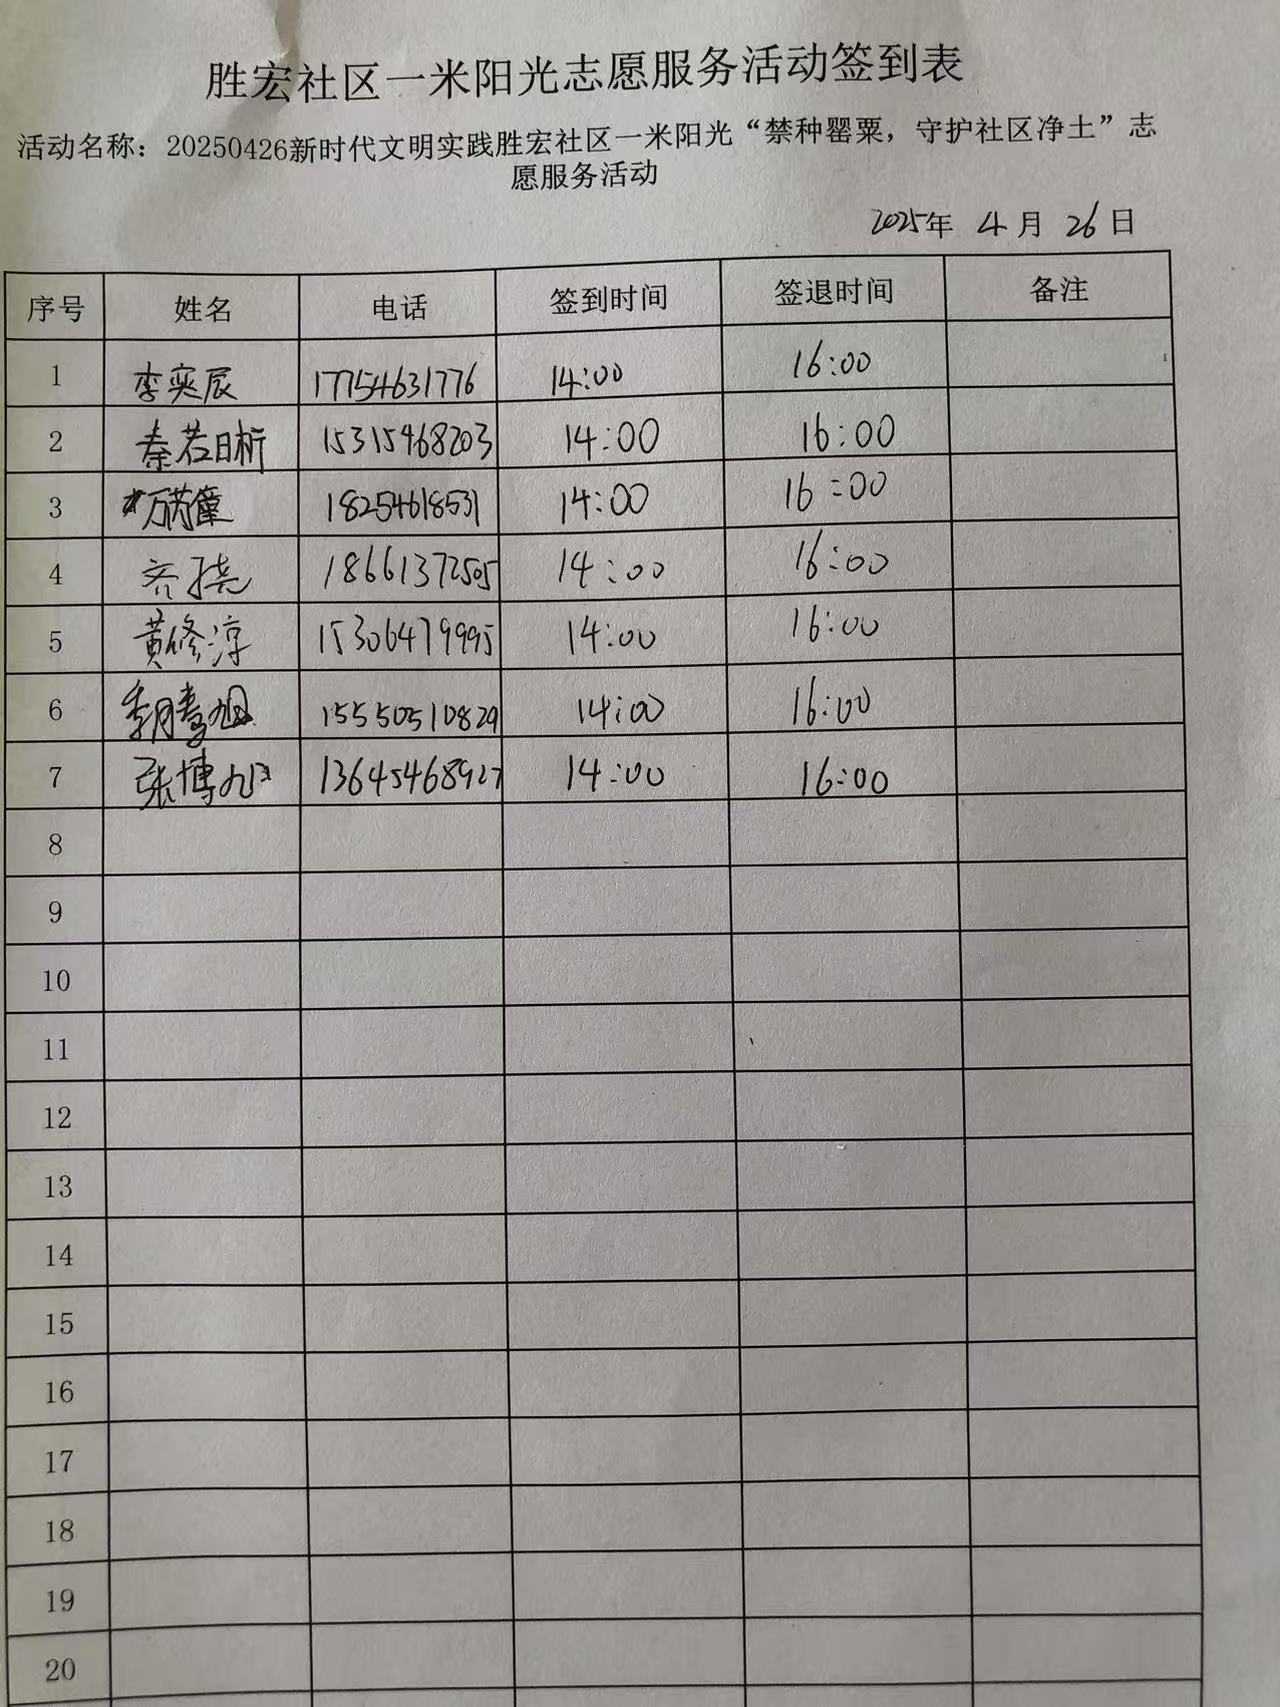 胜宏社区一米阳光志愿服务活动签到表
活动名称：20250426新时代文明实践胜宏社区一米阳光“禁种罂粟，守护社区净土”志
愿服务活动
2025年 4月 26日
序号 姓名 电话 签到时间 签退时间 备注
1 李奕辰 17754631776 14:00 16:00
2 秦若晰 15315468203 14:00 16:00
3 18254618531 14:00 16:00
4 齐 18661372505 14:00 16:00
5 黄修淳 15306479995 14:00 16:00
6 15550510829 14:00 16:00
7 张博 13645468927 14:00 16:00
8
9
10
11
12
13
14
15
16
17
18
19
20